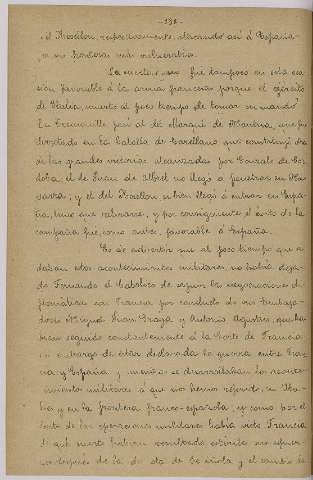 -132-
el Rosellon, respectivamente, atacando así á España,
en su frontera mas vulnerable.
La suerte no fué tampoco en esta oca
sion favorable á la arma francesa porque el ejército
de Italia, muerto al poco tiempo de tomar su mando
La Tremouille pasó al del Marqués de Mantua, que fué
derrotado en la batalla de Garellano que constituyó otra
de las grandes victorias alcanzadas por Gonzalo de Cor
doba, el de Juan de Albret no llegó á penetrar en Na
varra, y el del Rosellon si bien llegó á entrar en Espa
ña, tuvo que retirarse, y por consiguiente el éxito de la
campaña fué, como antes, favorable á España.
Es de advertir que al poco tiempo que se
daban estos acontecimientos militares, no habia deja
do Fernando el Catolico de seguir las negociaciones di
plomáticas con Francia por conducto de sus Embaja
dores Miguel Juan Gralla y Antonio Agustin, que ha
bian seguido constantemente á la Corte de Francia
sin embargo de estar declarada la guerra entre Fran
cia y España y mientras se desarrollaban los aconte
cimientos militares á que nos hemos referido, en Ita
lia y en la frontera franco-española, y como por el
éxito de las operaciones militares habia visto Francia
la que suerte habian resultado
despues de la de Ceriñola y el cambio de